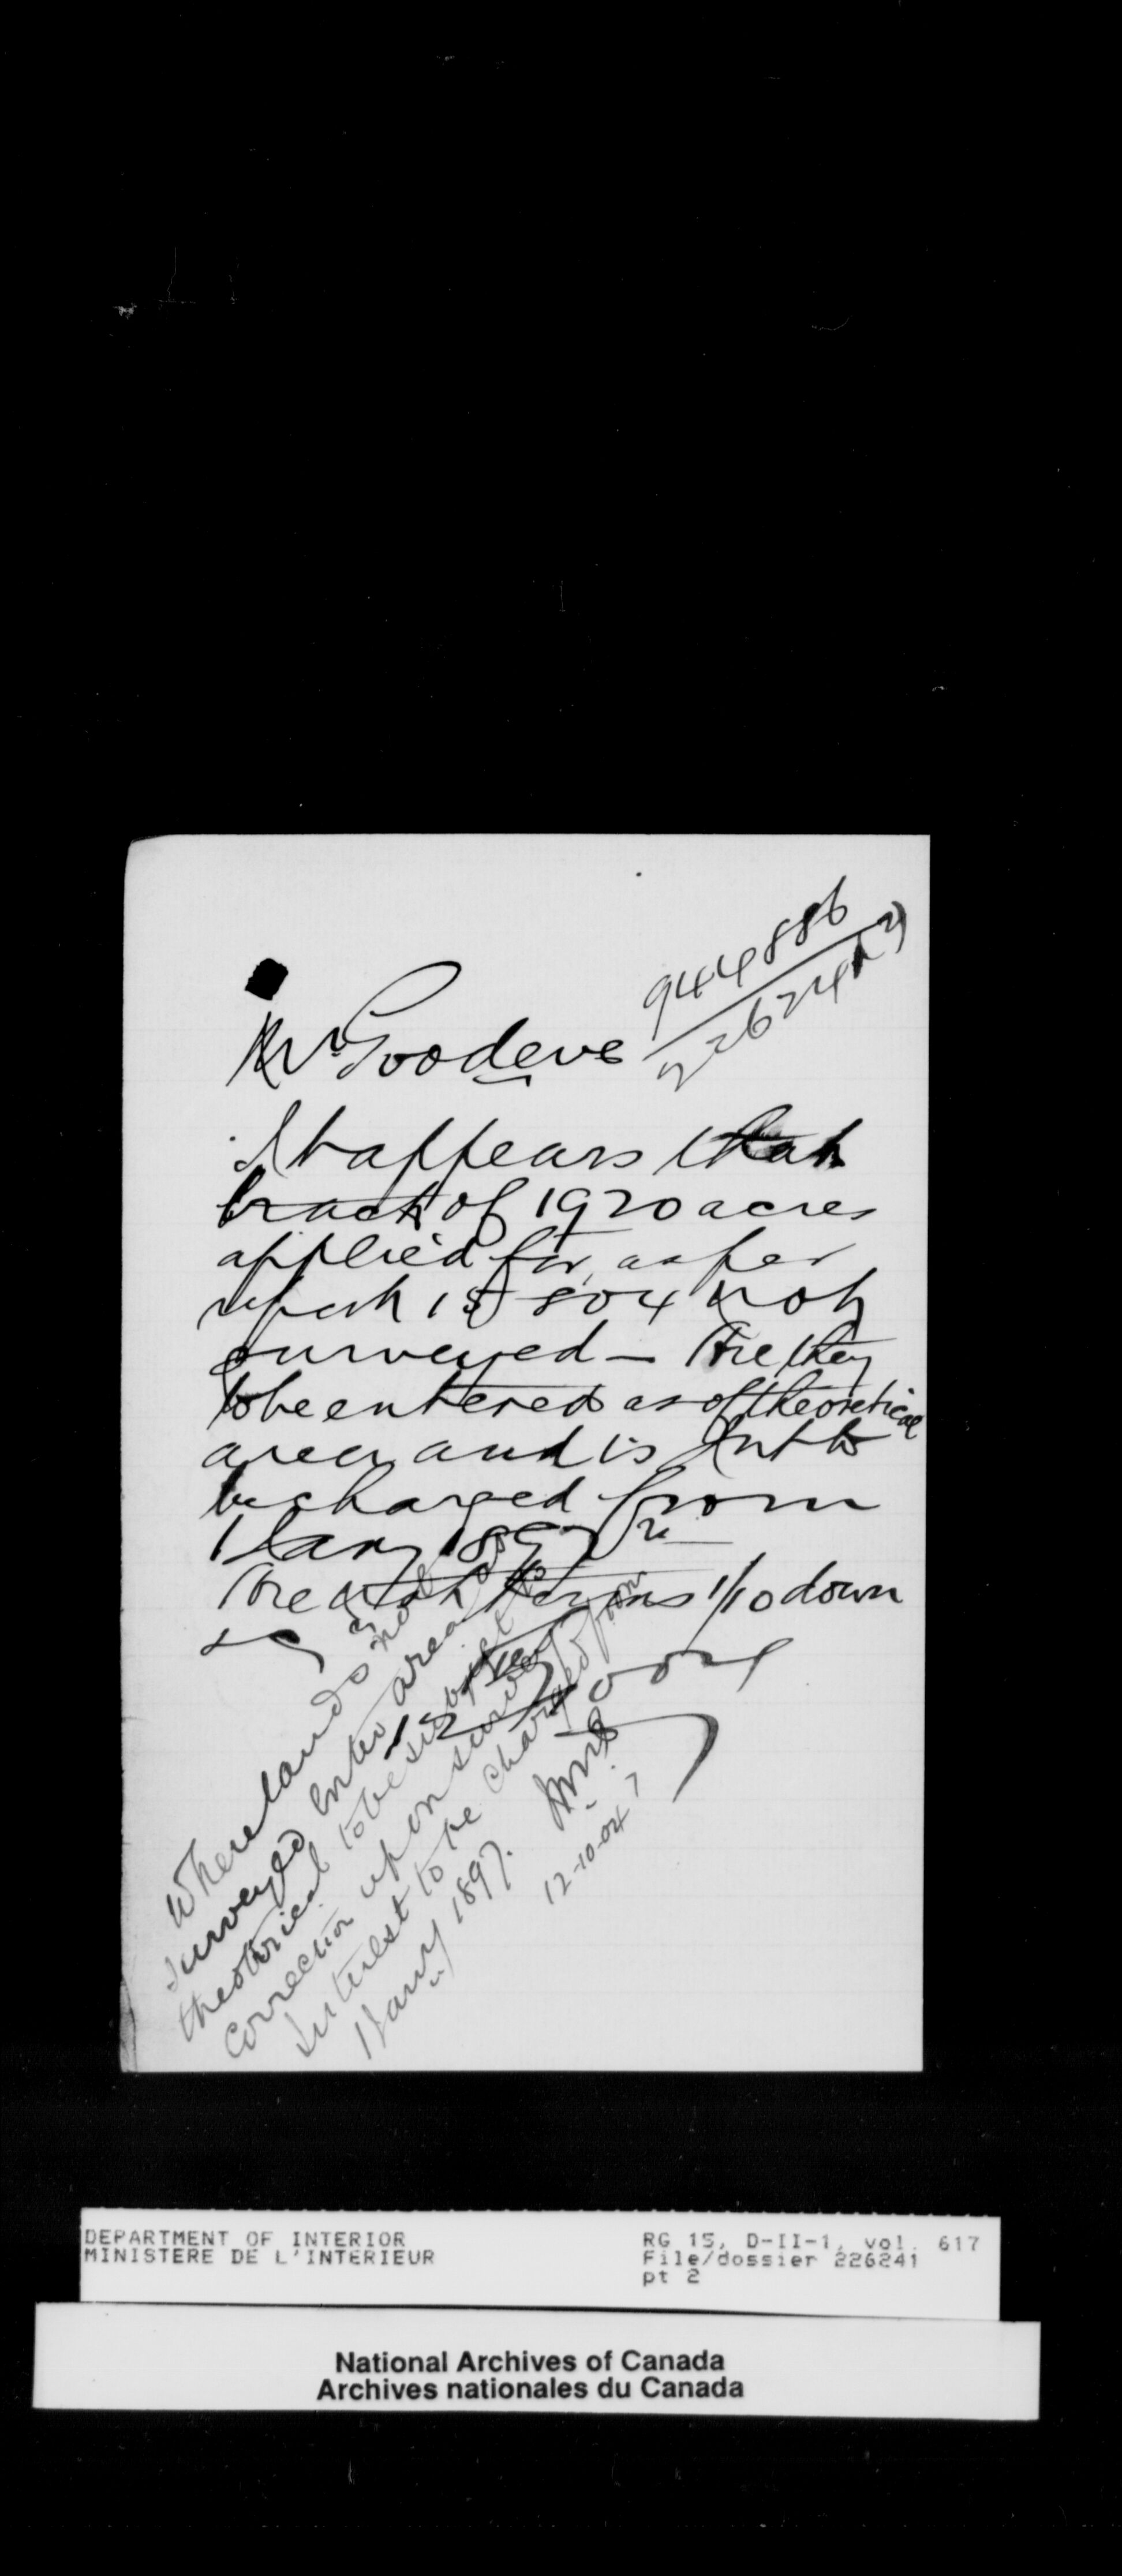 944886
226241 (2)
Mr Goodeve
It appears that
tract of 1920 acres
applied for, as per
not
surveyed — Are they
to be entered as of theoretical
area and is Int to
be charged from
1 Jany 1897
Are not terms 1/10 down
Where lands not
surveyed Enter area as
theoretical to be subject to
correction upon survey
Interest to be charged from
1 Jany 1897.
12-10-04
DEPARTMENT OF INTERIOR
MINISTERE DE L'INTERIEUR
RG 15, D-II-1, vol. 617
File/dossier 226241
pt 2
National Archives of Canada
Archives nationales du Canada